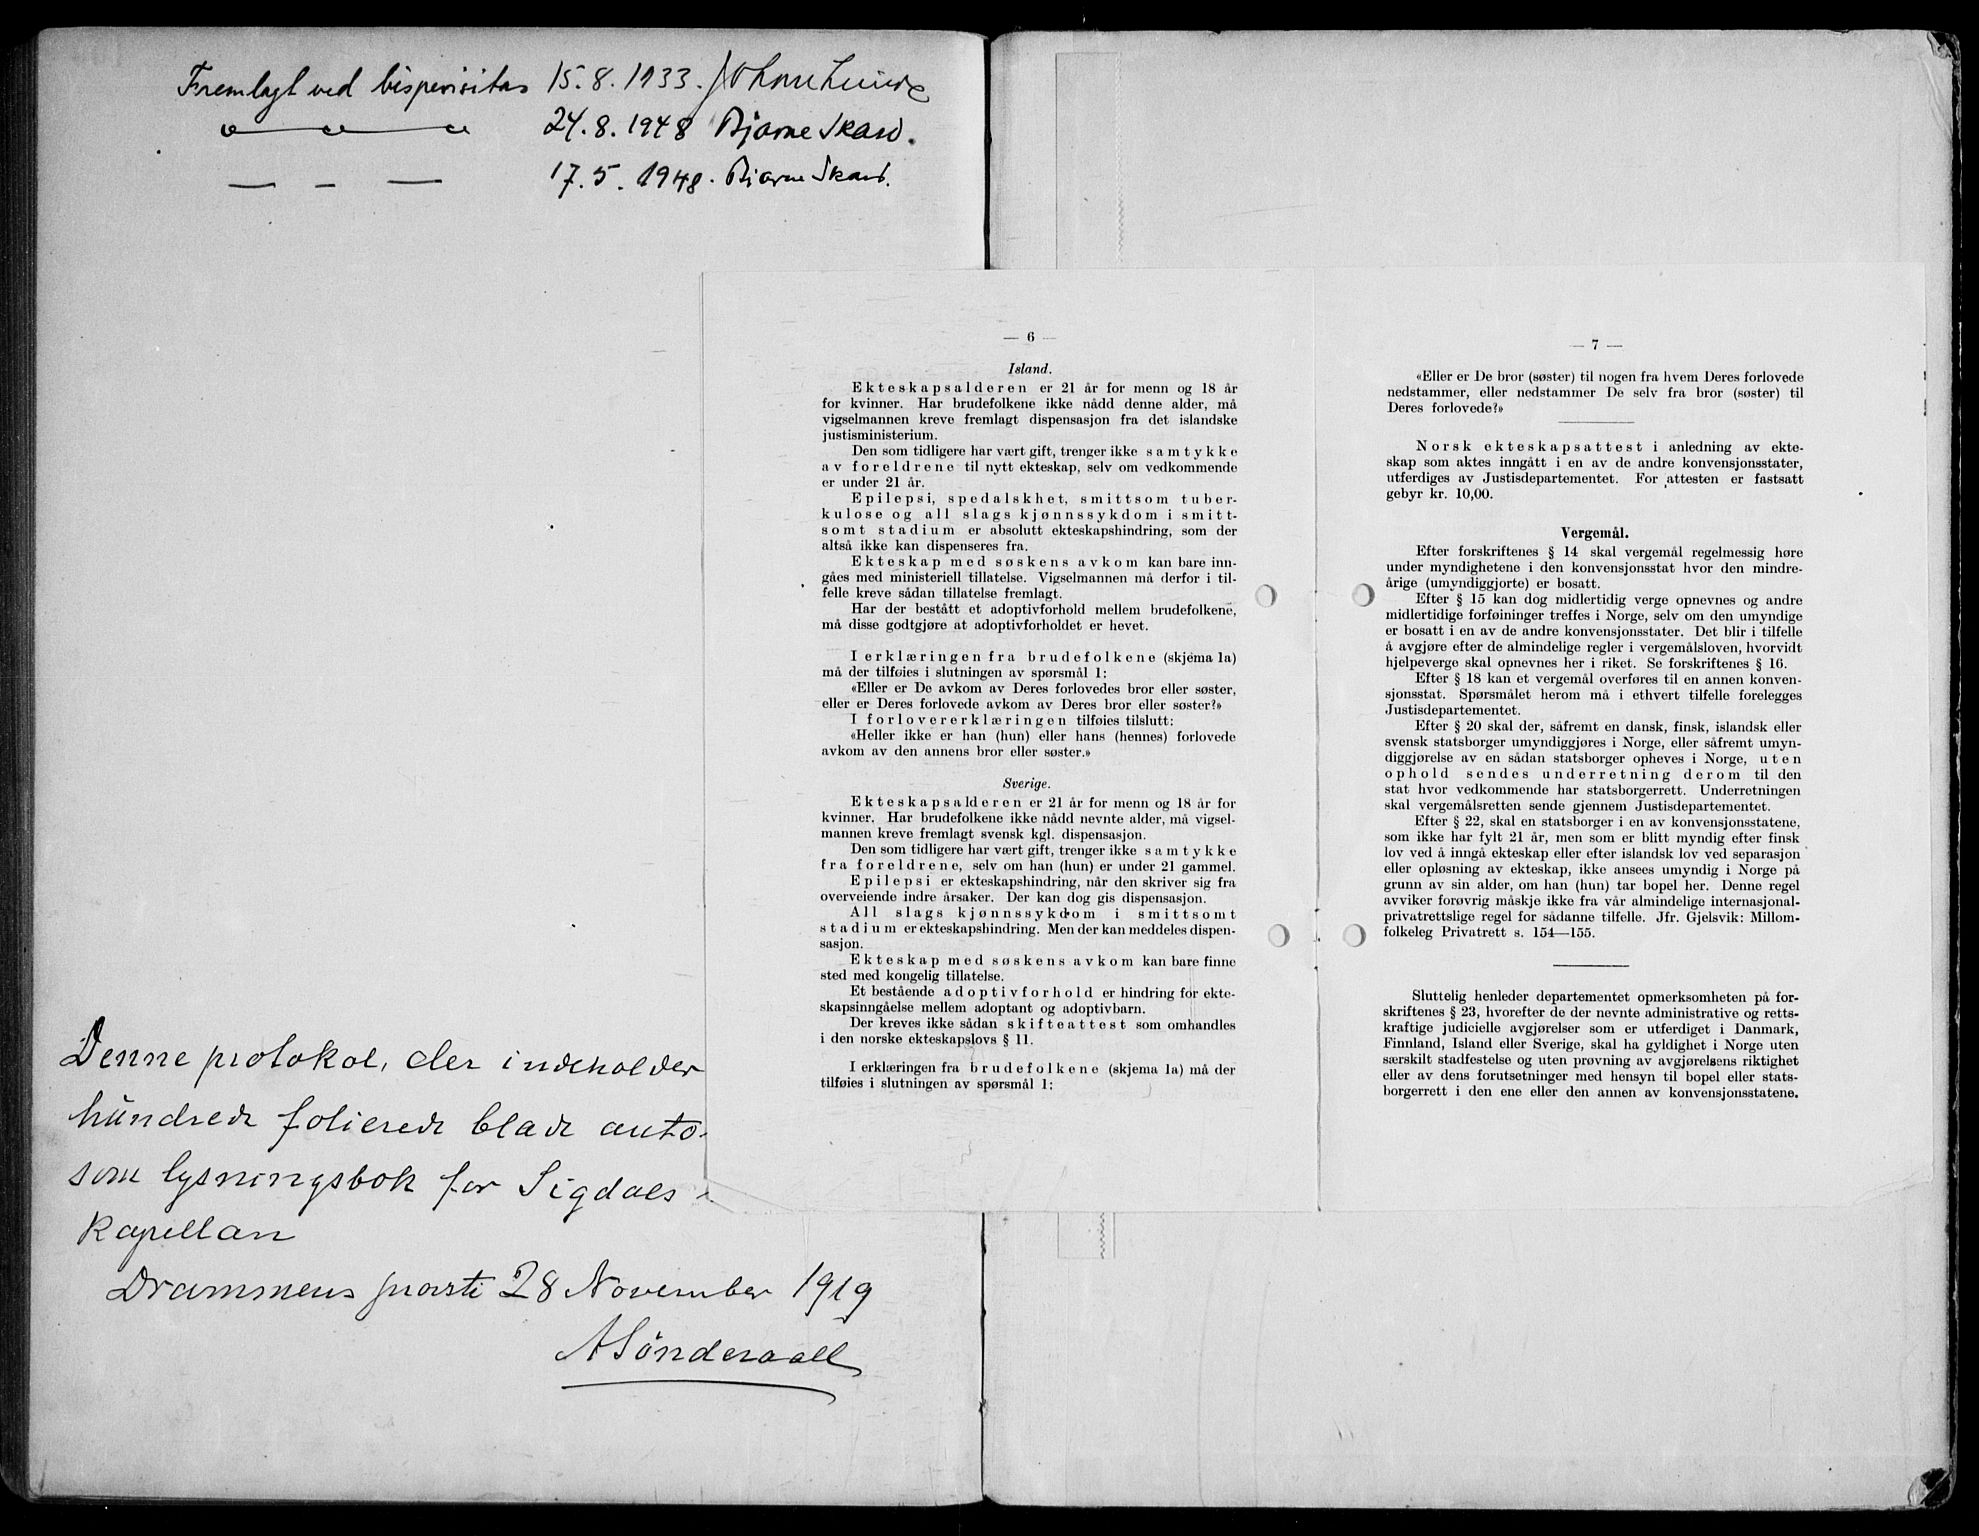 Fremlagt ved bispevisitas 15.8.1933. Johan Lunde
— " — " — 24.8.1948 Bjarne Skard.
— — — 17.5.1948. Bjarne Skard.
Denne protokol, der indeholder
hundrede folierede blade auto.
som lysningsbok for Sigdals
Kapellan
Drammens prosti 28 November 1919
A Sönderaall
— 6 —
Island.
Ekteskapsalderen er 21 år for menn og 18 år
for kvinner. Har brudefolkene ikke nådd denne alder, må
vigselmannen kreve fremlagt dispensasjon fra det islandske
justisministerium.
Den som tidligere har vært gift, trenger ikke samtykke
av foreldrene til nytt ekteskap, selv om vedkommende
er under 21 år.
Epilepsi, spedalskhet, smittsom tuber-
kulose og all slags kjønnssykdom i smitt-
somt stadium er absolutt ekteskapshindring, som der
altså ikke kan dispenseres fra.
Ekteskap med søskens avkom kan bare inn-
gåes med ministeriell tillatelse. Vigselmannen må derfor i til-
felle kreve sådan tillatelse fremlagt.
Har der bestått et adoptivforhold mellem brudefolkene,
må disse godtgjøre at adoptivforholdet er hevet.
I erklæringen fra brudefolkene (skjema 1a)
må der tilføies i slutningen av spørsmål 1:
«Eller er De avkom av Deres forlovedes bror eller søster,
eller er Deres forlovede avkom av Deres bror eller søster?»
I forlovererklæringen tilføies tilslutt:
«Heller ikke er han (hun) eller hans (hennes) forlovede
avkom av den annens bror eller søster.»
Sverige.
Ekteskapsalderen er 21 år for menn og 18 år for
kvinner. Har brudefolkene ikke nådd nevnte alder, må vigsel-
mannen kreve fremlagt svensk kgl. dispensasjon.
Den som tidligere har vært gift, trenger ikke samtykke
fra foreldrene, selv om han (hun) er under 21 gammel.
Epilepsi er ekteskapshindring, når den skriver sig fra
overveiende indre årsaker. Der kan dog gis dispensasjon.
All slags kjønnssykdom i smittsomt
stadium er ekteskapshindring. Men der kan meddeles dispen-
sasjon.
Ekteskap med søskens avkom kan bare finne
sted med kongelig tillatelse.
Et bestående adoptivforhold er hindring for ekte-
skapsinngåelse mellem adoptant og adoptivbarn.
Der kreves ikke sådan skifteattest som omhandles
i den norske ekteskapslovs § 11.
I erklæringen fra brudefolkene (skjema 1a) må der
tilføies i slutningen av spørsmål 1:
— 7 —
«Eller er De bror (søster) til nogen fra hvem Deres forlovede
nedstammer, eller nedstammer De selv fra bror (søster) til
Deres forlovede?»
Norsk ekteskapsattest i anledning av ekte-
skap som aktes inngått i en av de andre konvensjonsstater,
utferdiges av Justisdepartementet. For attesten er fastsatt
gebyr kr. 10,00.
Vergemål.
Efter forskriftenes § 14 skal vergemål regelmessig høre
under myndighetene i den konvensjonsstat hvor den mindre-
årige (umyndiggjorte) er bosatt.
Efter § 15 kan dog midlertidig verge opnevnes og andre
midlertidige forføininger treffes i Norge, selv om den umyndige
er bosatt i en av de andre konvensjonsstater. Det blir i tilfelle
å avgjøre efter de almindelige regler i vergemålsloven, hvorvidt
hjelpeverge skal opnevnes her i riket. Se forskriftenes § 16.
Efter § 18 kan et vergemål overføres til en annen konven-
sjonsstat. Spørsmålet herom må i ethvert tilfelle forelegges
Justisdepartementet.
Efter § 20 skal der, såfremt en dansk, finsk, islandsk eller
svensk statsborger umyndiggjøres i Norge, eller såfremt umyn-
diggjørelse av en sådan statsborger opheves i Norge, uten
ophold sendes underretning derom til den
stat hvor vedkommende har statsborgerrett. Underretningen
skal vergemålsretten sende gjennem Justisdepartementet.
Efter § 22, skal en statsborger i en av konvensjonsstatene,
som ikke har fylt 21 år, men som er blitt myndig efter finsk
lov ved å inngå ekteskap eller efter islandsk lov ved separasjon
eller opløsning av ekteskap, ikke ansees umyndig i Norge på
grunn av sin alder, om han (hun) tar bopel her. Denne regel
avviker forøvrig måskje ikke fra vår almindelige internasjonal-
privatrettslige regel for sådanne tilfelle. Jfr. Gjelsvik: Millom-
folkeleg Privatrett s. 154—155.
Sluttelig henleder departementet opmerksomheten på for-
skriftenes § 23, hvorefter de der nevnte administrative og retts-
kraftige judicielle avgjørelser som er utferdiget i Danmark,
Finnland, Island eller Sverige, skal ha gyldighet i Norge uten
særskilt stadfestelse og uten prøvning av avgjørelsens riktighet
eller av dens forutsetninger med hensyn til bopel eller stats-
borgerrett i den ene eller den annen av konvensjonsstatene.